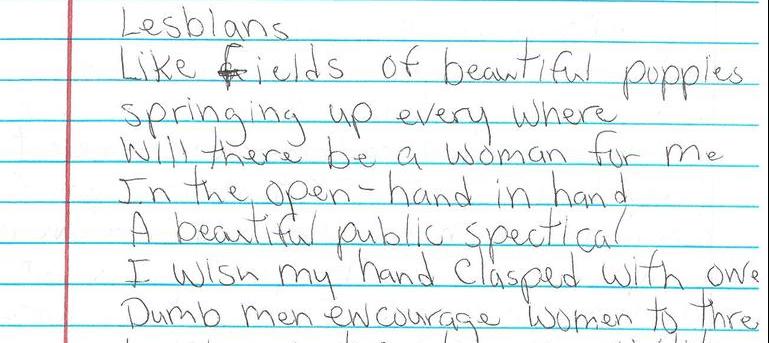 Lesbians
Like fields of beautiful poppies
springing up every where
Will there be a woman for me
In the open-hand in hand
A beautiful public spectical
I wish my hand clasped with owe
Dumb men encourage women to thre